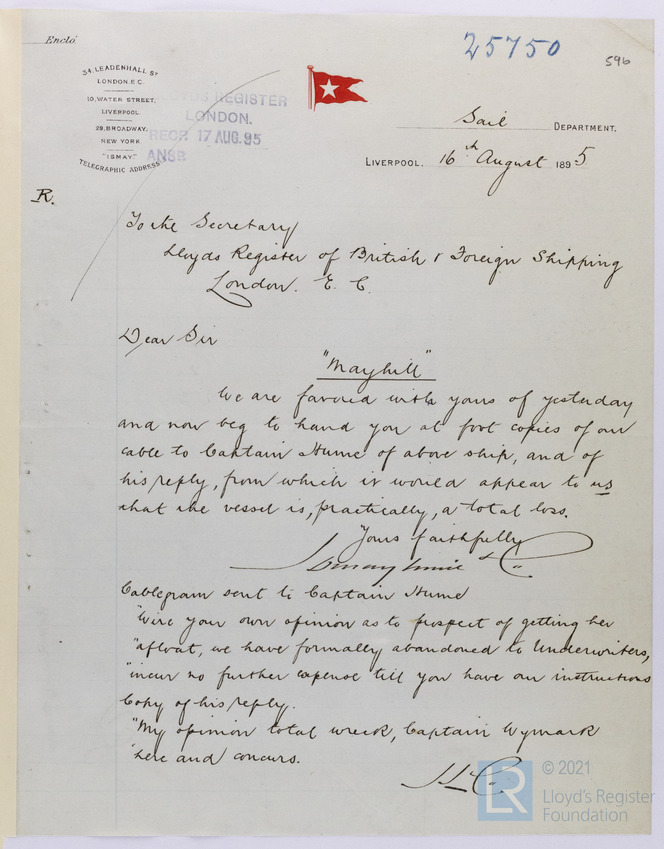 Enclo.
25750
596
34, LEADENHALL ST
LONDON. E.C.
10, WATER STREET,
LIVERPOOL
29, BROADWAY,
NEW YORK
"ISMAY."
TELEGRAPHIC ADDRESS
LLOYDS REGISTER
LONDON.
RECD 17 AUG. 95
ANSD
Sail DEPARTMENT.
LIVERPOOL. 16th August 1895
R.
To the Secretary
Lloyds Register of British & Foreign Shipping
London. E. C.
Dear Sir
"Mayhill"
We are favored with yours of yesterday
and now beg to hand you at foot copies of our
cable to Captain Hume of above ship, and of
his reply, from which it would appear to us
that the vessel is, practically, a total loss.
Yours faithfully
Ismay Imrie & Co
Cablegram sent to Captain Hume
"Wire your own opinion as to prospect of getting her
"afloat, we have formally abandoned to Underwriters,
"incur no further expense till you have our instructions
Copy of his reply.
"My opinion total wreck, Captain Wymark
"here and concurs.
LR
© 2021
Lloyd's Register
Foundation